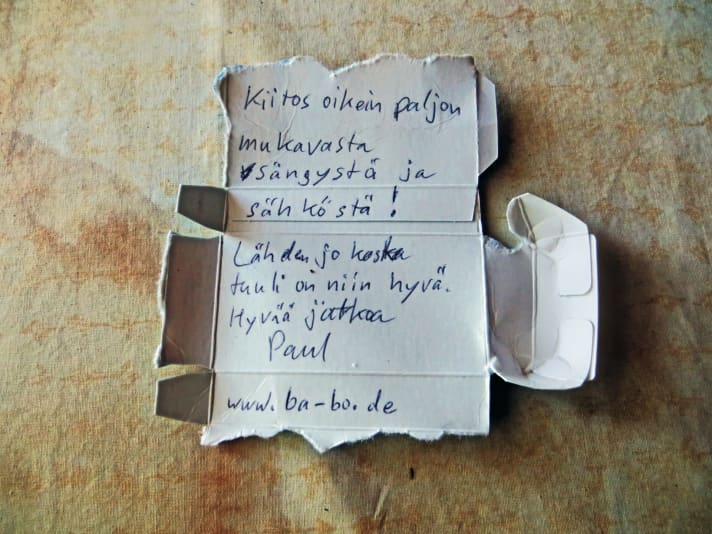 Kiitos oikein paljon
mukavasta
sängystä ja
sähköstä!
Lähden jo koska
tuuli on niin hyvä.
Hyvää jatkoa
Paul
www.ba-bo.de